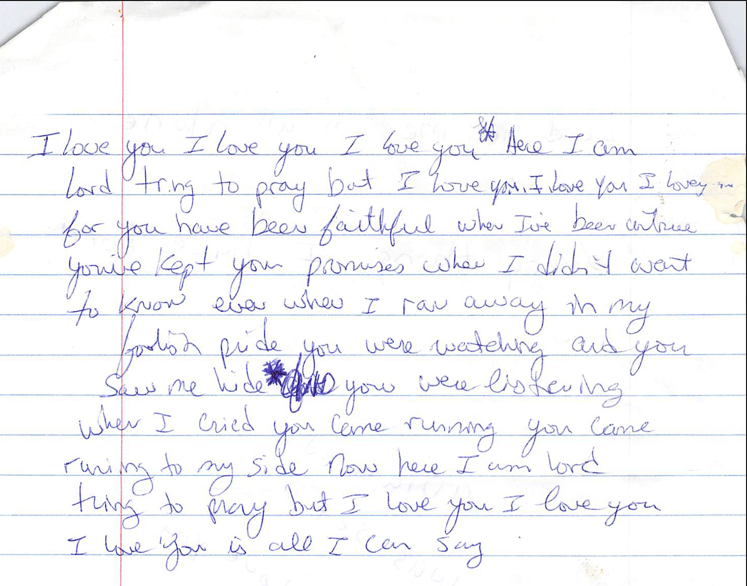 I love you I love you I love you * Here I am
lord tring to pray but I love you. I love you I love you
for you have been faithful when I've been untrue
you've kept your promises when I didn't want
to know even when I ran away in my
foolish pride you were watching and you
saw me hide * you were listening
when I cried you came running you came
runing to my side Now here I am lord
tring to pray but I love you I love you
I love you is all I can say